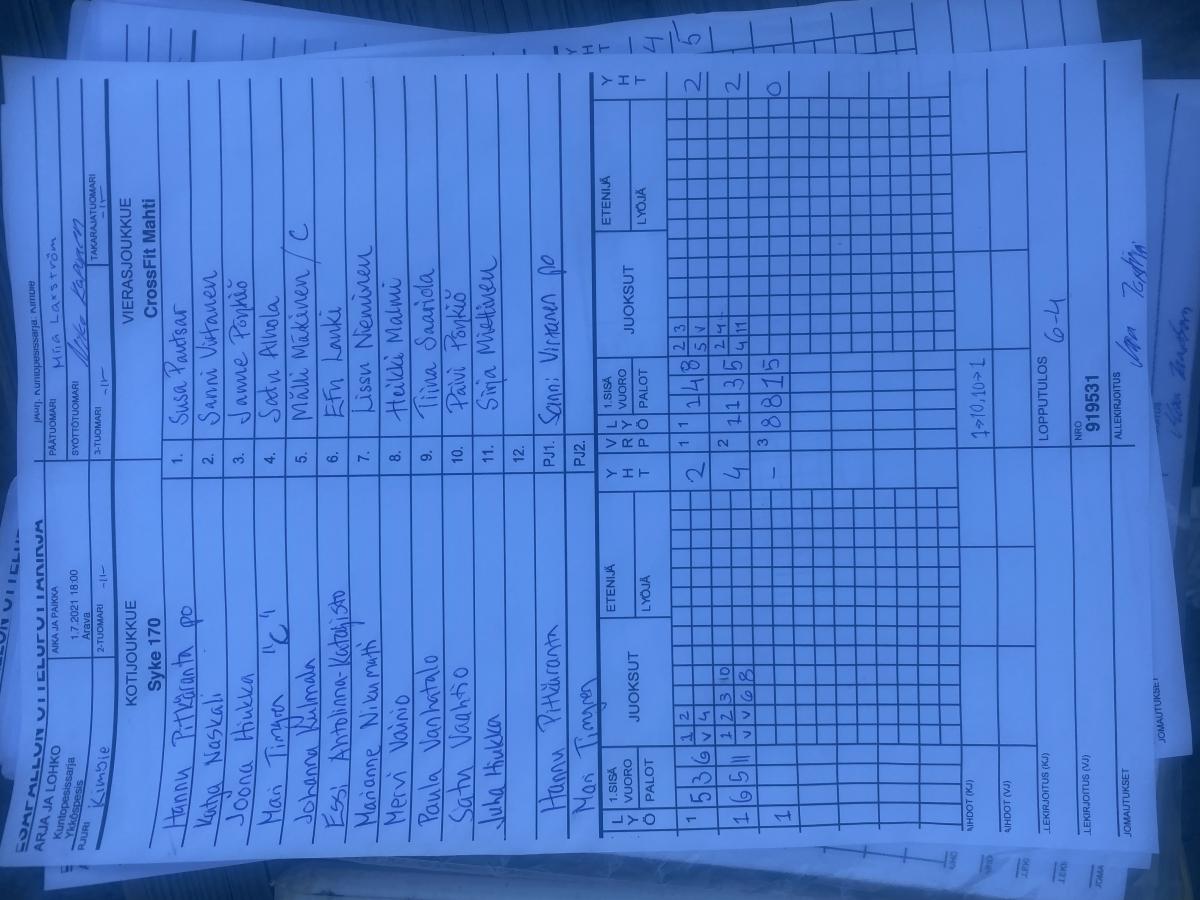 ESÄPALLON OTTELUPÖYTÄKIRJA
ARJA JA LOHKO
Kuntopesissarja
Ykköspesis
AIKA JA PAIKKA
1.7.2021 18:00
Arava
PÄÄTUOMARI
SYÖTTÖTUOMARI
PJURI
Kimble
2-TUOMARI
-11-
3-TUOMARI
-11-
TAKARAJATUOMARI
-11-
KOTIJOUKKUE
Syke 170
VIERASJOUKKUE
CrossFit Mahti
Hannu Pitkäranta po
1. Susa Pantsar
Katja Naskali
2. Sanni Virtanen
Joona Hiukka
3. Janne Pörhiö
Mari Tingren "C"
4. Satu Alhola
Johanna Kulmala
5. Mälli Mäkinen /C
Essi Antolinna-Katajisto
6. Efri Lanki
Marianne Nikumatti
7. Lissu Nieminen
Mervi Vainio
8. Heikki Malmi
Paula Vanhatalo
9. Tiina Saariola
Satu Vaahtio
10. Päivi Pörhiö
Juha Hiukka
11. Sirja Miettinen
12.
Hannu Pitkäranta
PJ1. Sanni Virtanen po
Mari Tingren
PJ2.
LYÖ 1.SISÄVUORO PALOT JUOKSUT ETENIJÄ LYÖJÄ YHT VRP LYÖ 1.SISÄVUORO PALOT JUOKSUT ETENIJÄ LYÖJÄ YHT
1 5 3 6 1 2 2 1 1 1 4 8 2 3 2
V 4 5 V
1 6 5 11 1 2 3 10 4 2 1 1 3 5 2 4 2
V V 6 8 4 11
1 - 3 8 8 1 5 0
AIHDOT (KJ)
7→10,10→1
AIHDOT (VJ)
LEKIRJOITUS (KJ)
LOPPUTULOS
6-4
LEKIRJOITUS (VJ)
NRO
919531
JOMAUTUKSET
ALLEKIRJOITUS
JOMAUTUKSET